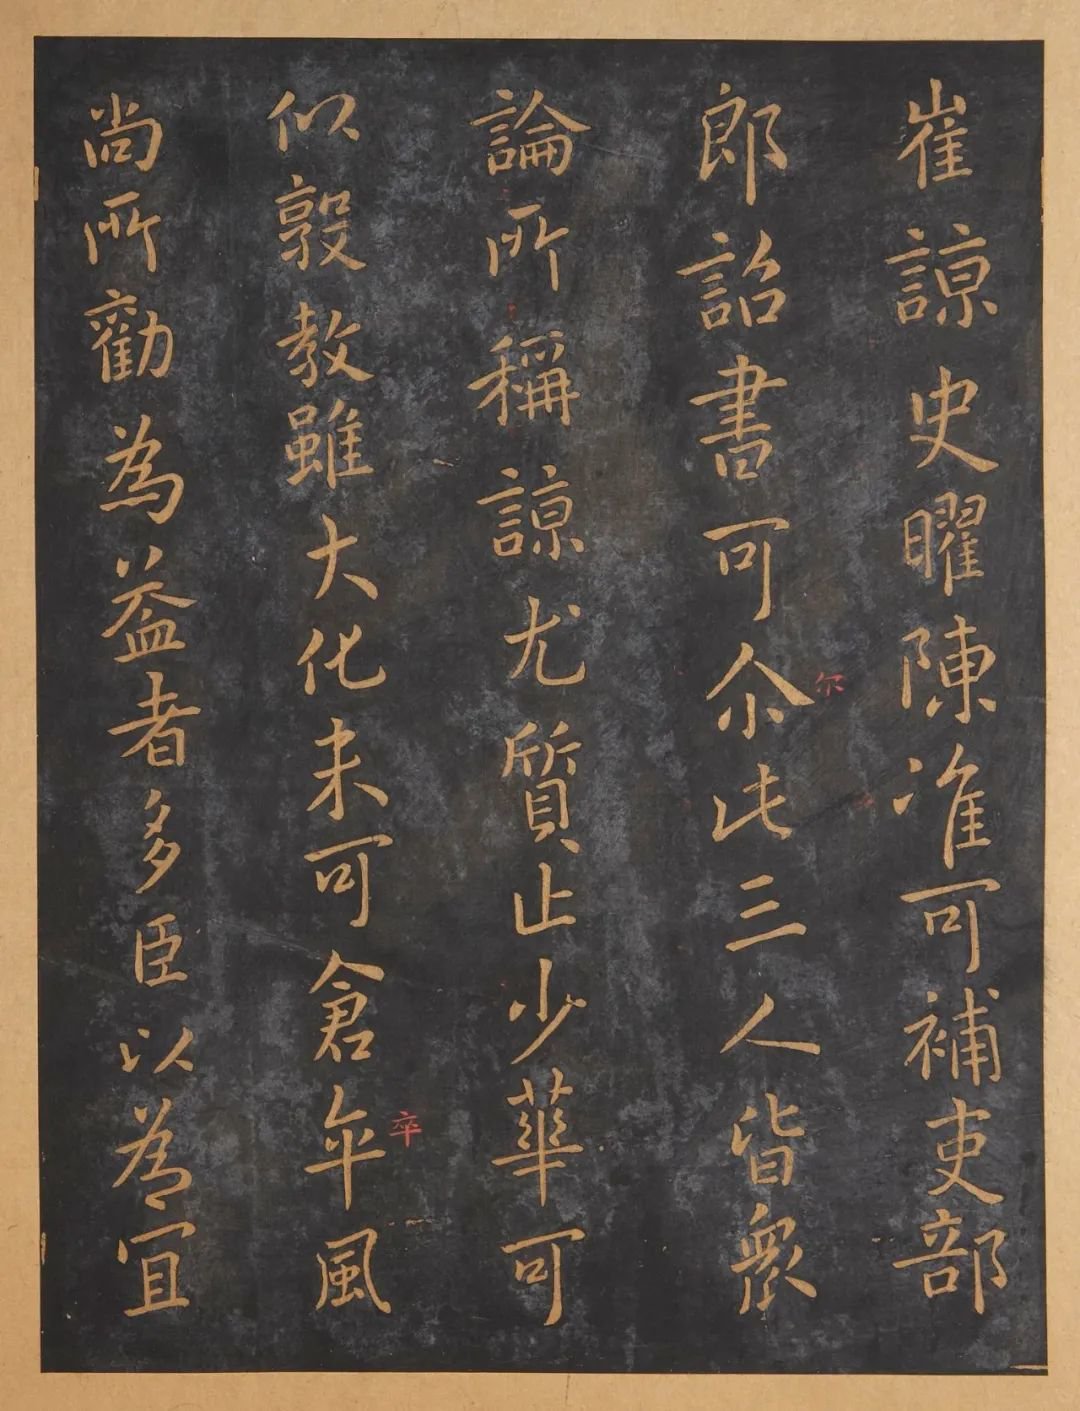 崔諒史曜陳准可補吏部
郎詔書可尒此三人皆衆
論所稱諒尤質止少華可
以敦教雖大化未可倉卒風
尚所勸為益者多臣以為宜
尔
卒